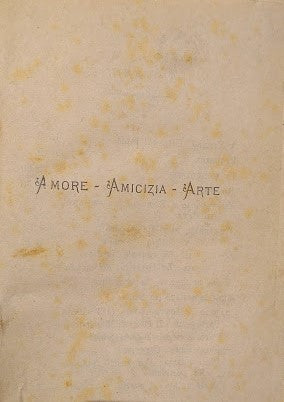 AMORE - AMICIZIA - ARTE